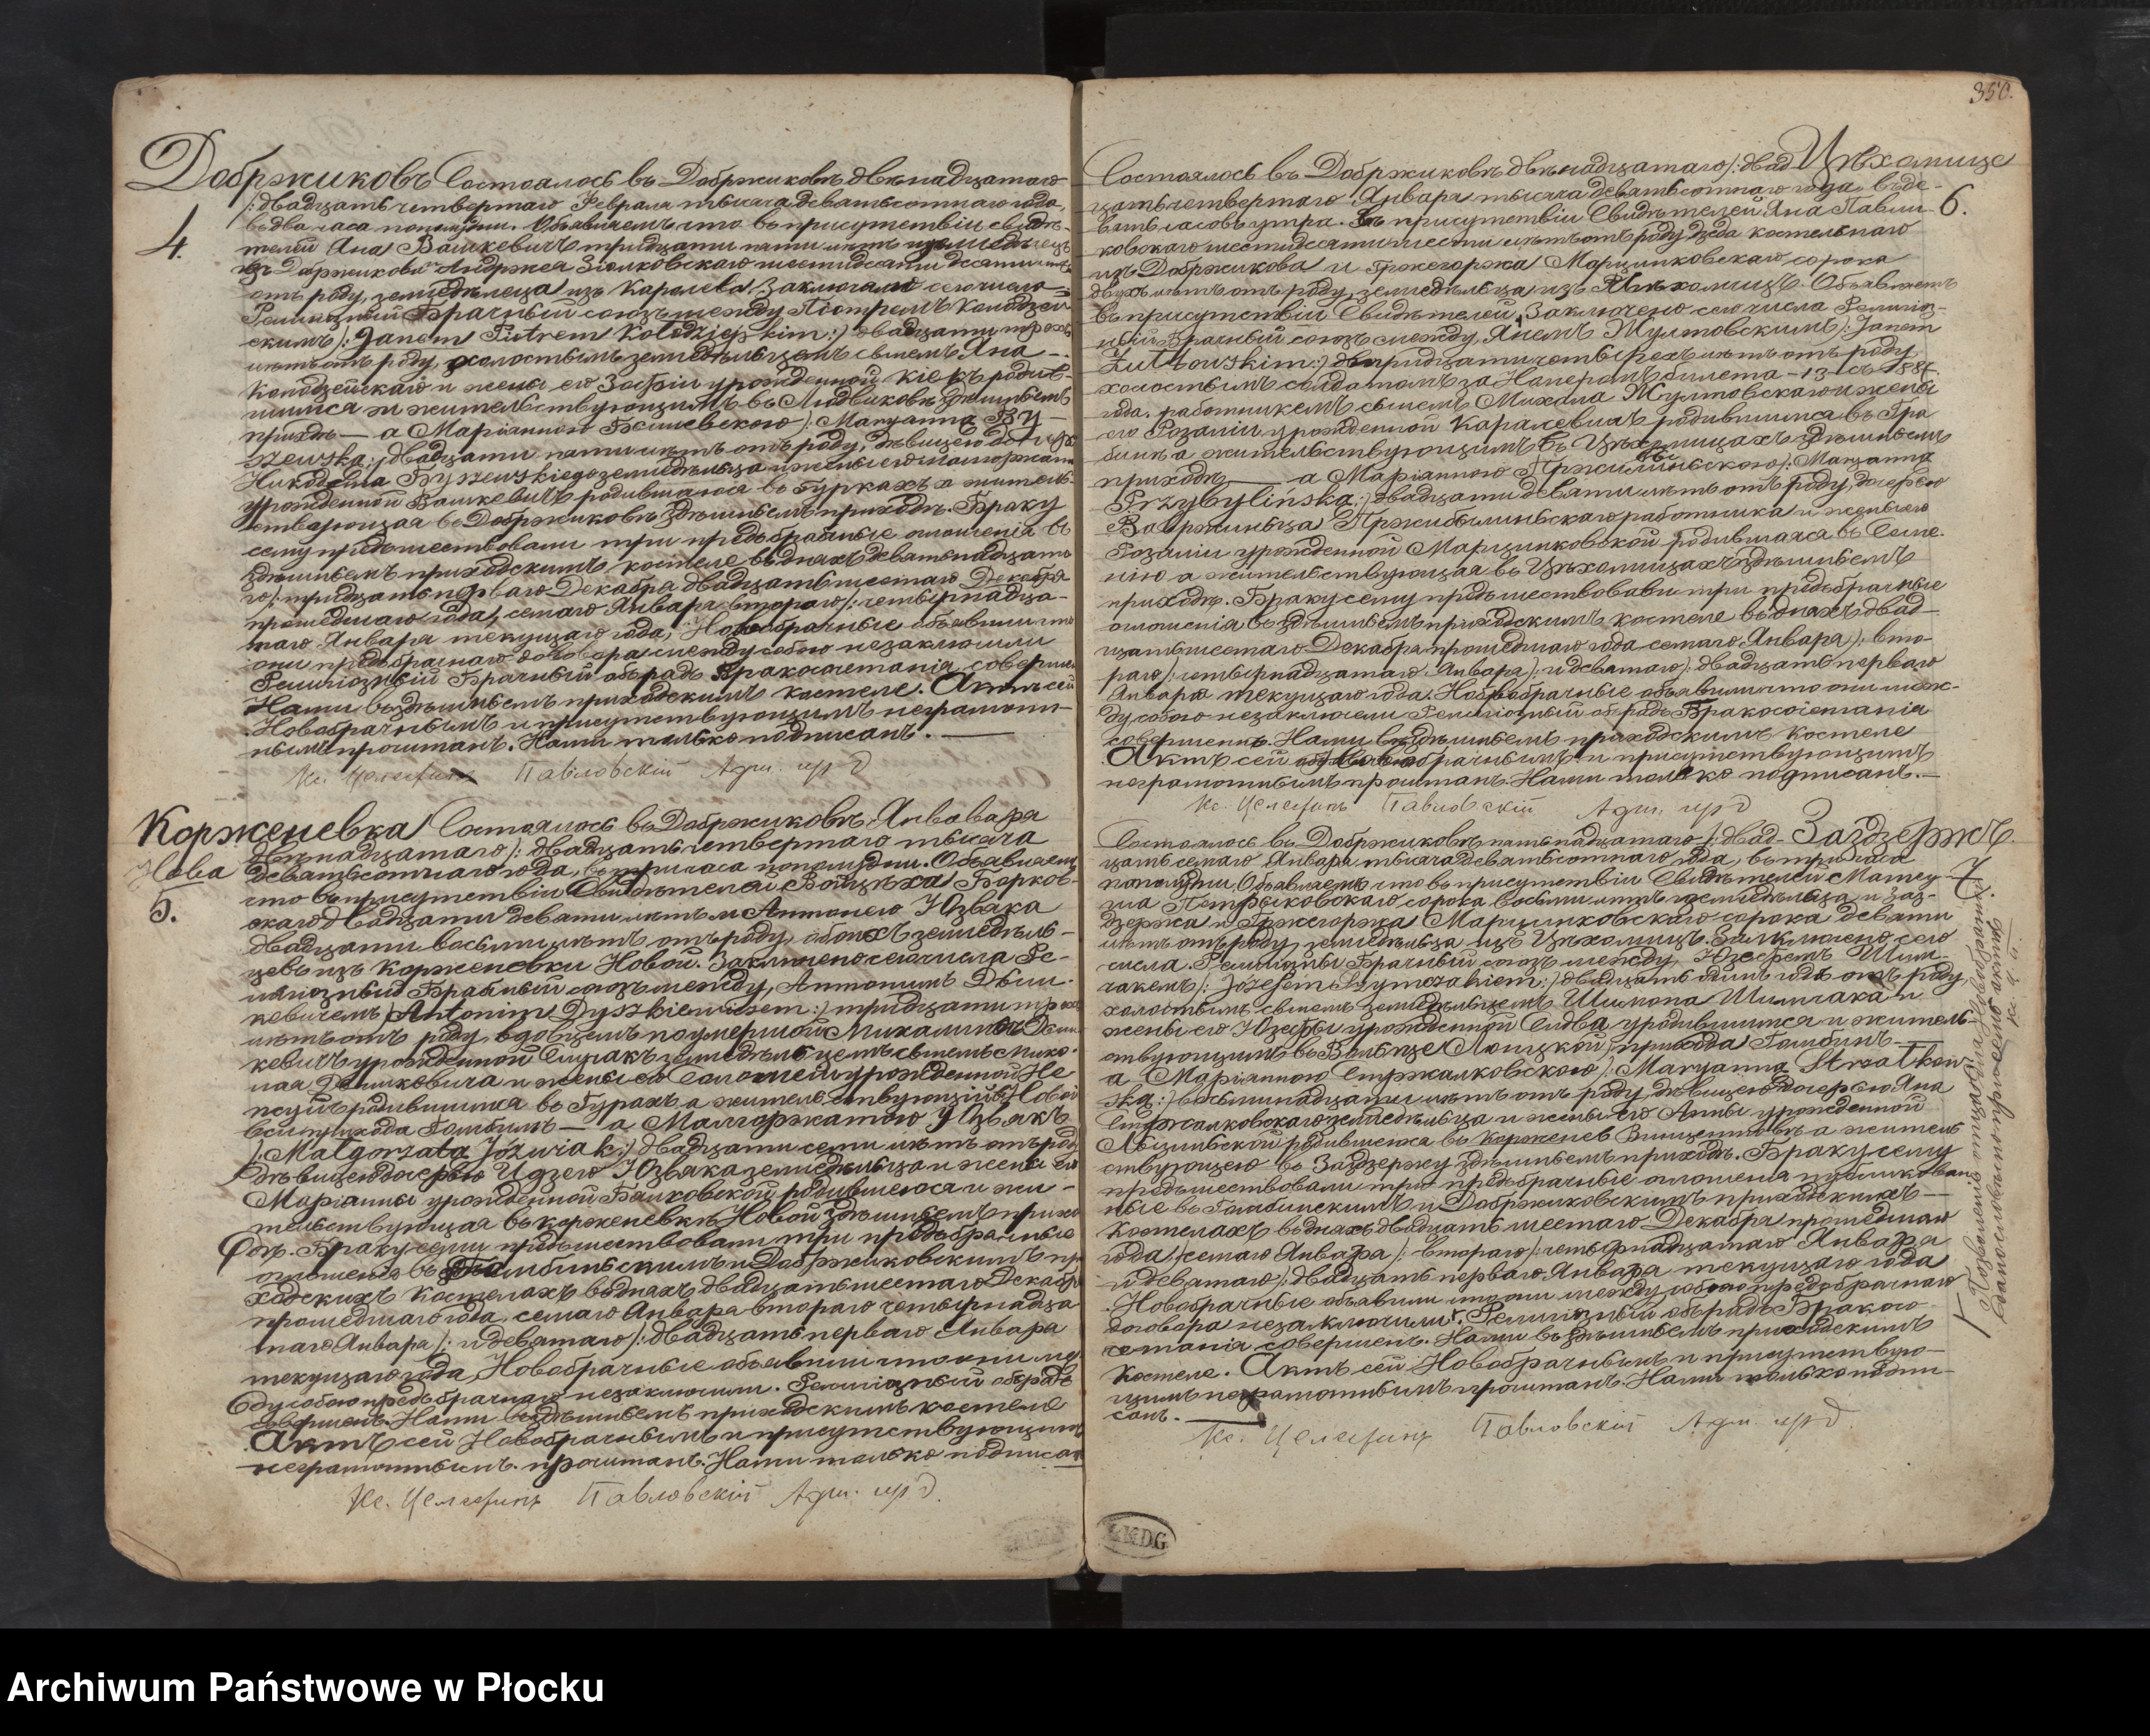 Добржиковъ Состоялось въ Добржиковѣ двѣнадцатаго
4.
/: двадцать четвертаго Февраля тысяча девятьсотнаго года,
въ два часа пополудни. Объявляемъ что въ присутствіи свидѣ-
телей Яна Вашкевичъ тридцати пяти лѣтъ
изъ Добржикова и Андржея Зіолковскаго шестидесяти
отъ роду, земледѣльца изъ Каролева, заключенъ сего числа
Религіозный Брачный союзъ между Піотремъ Колодзей-
скимъ /: Janem Piotrem Kołodziejskim :/ двадцати трехъ
лѣтъ отъ роду, холостымъ земледѣльцемъ сыномъ Яна
Колодзейскаго и жены его Зофіи урожденной родив-
шимся и жительствующимъ въ Людвиковѣ здѣшнемъ
приходѣ — а Маріанною Бушевскою /: Maryanną Bu-
szewską :/ двадцати пяти лѣтъ отъ роду, дѣвицею дочерью
Никодема земледѣльца и жены его Малгоржаты
урожденной Вашкевичъ родившаяся въ Гуркахъ а житель-
ствующая въ Добржиковѣ здѣшнемъ приходѣ. Браку
сему предшествовали три предбрачные оглашенія въ
здѣшнемъ приходскимъ костеле въ дняхъ девятнадцата-
го /: тридцать перваго Декабря двадцать шестаго Декабря
прошедшаго года, семаго Января втораго /: четырнадца-
таго Января текущаго года, Новобрачные объявили что
они предбрачнаго договора между собою незаключили
Религіозный Брачный обрядъ Бракосочетанія совершенъ
Нами въ здѣшнемъ приходскимъ костеле. Актъ сей
Новобрачнымъ и присутствующимъ неграмот-
нымъ прочитанъ. Нами только подписанъ. —
Кс. Целестинъ Павловскій Адм. прд
Корженевка Состоялось въ Добржиковѣ Января
Нова
5.
двѣнадцатаго /: двадцать четвертаго тысяча
девятьсотнаго года, въ три часа пополудни. Объявляемъ
что въ присутствіи Свидѣтелей Войцѣха Борков-
скаго двадцати девяти лѣтъ и Антонего Юзвяка
двадцати восьми лѣтъ отъ роду, обоихъ земледѣль-
цевъ изъ Корженевки Новой. Заключенъ сего числа Ре-
лигіозный Брачный союзъ между, Антонимъ Дыш-
кевичемъ /: Antonim Dyszkiewiczem :/ тридцати трехъ
лѣтъ отъ роду, вдовцемъ по умершой Михалинѣ Дыш-
кевичъ урожденной земледѣльцемъ сыномъ Мико-
лая Дышкевича и жены его Саломеи урожденной
родившимся въ Гурахъ а жительствующій въ Новой
вси прихода Гомбинъ — а Малгоржатою Юзвякъ
/: Małgorzatą Józwiak :/ двадцати семи лѣтъ отъ роду
дѣвицею дочерью Идзего Юзвяка земледѣльца и жены его
Маріанны урожденной родившеюся и жи-
тельствующая въ Корженевкѣ Новой здѣшнемъ прихо-
дѣ. Браку сему предшествовали три предбрачные
оглашенія въ Гомбинскимъ и Добржиковскимъ при-
ходскихъ костелахъ въ дняхъ двадцать шестаго Декабря
прошедшаго года, семаго Января втораго четырнадца-
таго Января /: и девятаго /: двадцать перваго Января
текущаго года, Новобрачные объявили что они меж-
ду собою предбрачнаго незаключили. Религіозный обрядъ
совершенъ. Нами въ здѣшнемъ приходскимъ костеле
Актъ сей Новобрачнымъ и присутствующимъ
неграмотнымъ прочитанъ. Нами только подписанъ
Кс. Целестинъ Павловскій Адм. прд.
350.
Состоялось въ Добржиковѣ двѣнадцатаго /: двад- Цѣхомице
6.
цать четвертаго Января тысяча девятьсотнаго года, въ де-
вять часовъ утра. Въ присутствіи Свидѣтелей Яна Павли-
ковскаго шестидесяти шести лѣтъ отъ роду дзяда костельнаго
изъ Добржикова и Гржегоржа Марцинковскаго сорока
двухъ лѣтъ отъ роду, земледѣльца изъ Цѣхомицъ. Объявляемъ
въ присутствіи Свидѣтелей, Заключенъ сего числа Религіоз-
ный Брачный союзъ между, Янемъ Жултовскимъ /: Janem
Żułtowskim :/ тридцати четырехъ лѣтъ отъ роду,
холостымъ солдатомъ за Нумеромъ билета — 13 съ 188
года. работникемъ сынемъ Михала Жултовскаго и жены
его Розаліи урожденной Каралевичъ родившимся въ Гра-
бинѣ а жительствующимъ въ Цѣхомицахъ здѣшнемъ
приходѣ — а Маріанною Пржибылиньскою /: Maryanną
Przybylińską :/ двадцати девяти лѣтъ отъ роду, дочерью
Вавржиньца Пржибылиньскаго работника и жены его
Розаліи урожденной Марцинковской родившаяся въ Семе-
ню а жительствующая въ Цѣхомицахъ здѣшнемъ
приходѣ. Браку сему предшествовали три предбрачные
оглашенія въ здѣшнемъ приходскимъ костеле въ дняхъ двад-
цать шестаго Декабря прошедшаго года семаго Января /: вто-
раго /: четырнадцатаго Января /: и девятаго /: двадцать перваго
Января текущаго года, Новобрачные объявили что они меж-
ду собою незаключили Религіозный обрядъ Бракосочетанія
совершенъ. Нами въ здѣшнемъ приходскимъ костеле
Актъ сей Новобрачнымъ и присутствующимъ
неграмотнымъ прочитанъ. Нами только подписанъ. —
Кс. Целестинъ Павловскій Адм. прд
Состоялось въ Добржиковѣ пятьнадцатаго /: двад- Заздзержъ
7.
цать семаго Января тысяча девятьсотнаго года, въ три часа
пополудни, Объявляемъ что въ присутствіи Свидѣтелей Матеу-
ша Петрыковскаго сорока восьми лѣтъ земледѣльца изъ Заз-
дзержа и Гржегоржа Марцинковскаго сорока девяти
лѣтъ отъ роду, земледѣльца изъ Цѣхомицъ. Заключенъ сего
числа. Религійны Брачный союзъ между, Юзефемъ Шим-
чакемъ /: Józefem Szymczakiem :/ двадцать одинъ годъ отъ роду,
холостымъ сынемъ земледѣльцемъ Шимона Шимчака и
жены его Юзефы урожденной родившимся и житель-
ствующимъ въ Вольцѣ Лонцкой прихода Гомбинъ —
а Маріанною Стржалковскою /: Maryanną Strzałkow-
ską :/ восьминадцати лѣтъ отъ роду, дѣвицею дочерью Яна
Стржалковскаго земледѣльца и жены его Анны урожденной
родившеюся въ а житель-
ствующею въ Заздзержу здѣшнемъ приходѣ. Браку сему
предшествовали три предбрачные оглашенія публикован-
ные въ Гомбинскимъ и Добржиковскимъ приходскихъ —
костелахъ въ дняхъ двадцать шестаго Декабря прошедшаго
года, семаго Января /: втораго /: четырнадцатаго Января
и девятаго /: двадцать перваго Января текущаго года
Новобрачные объявили что они между собою предбрачнаго
договора незаключили. Религіозный обрядъ Бракосо-
четанія совершенъ. Нами въ здѣшнемъ приходскимъ
костеле. Актъ сей Новобрачнымъ и присутствую-
щимъ неграмотнымъ прочитанъ. Нами только подпи-
санъ. —
Кс. Целестинъ Павловскій Адм. прд.
Archiwum Państwowe w Płocku